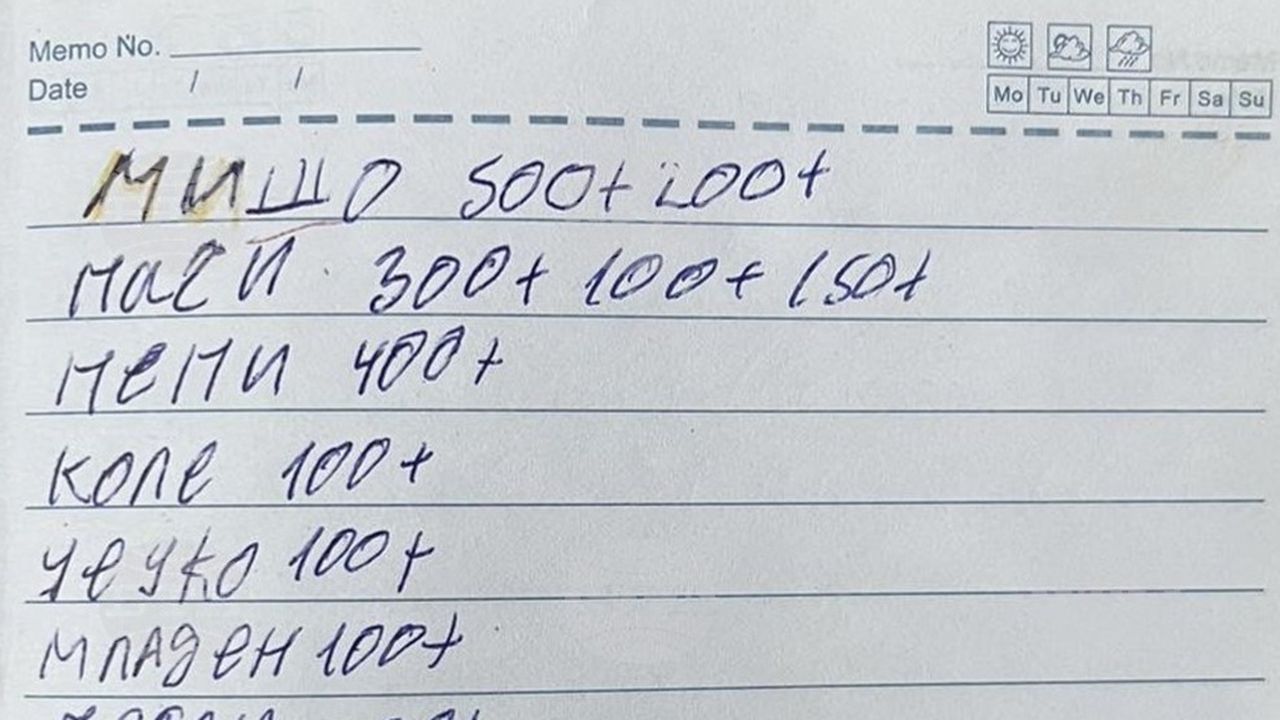 Memo No.
Date / /
Mo Tu We Th Fr Sa Su
МИШО 500+ 200+
НАСИ 300+ 100+ 150+
НЕНИ 400+
КОЛЕ 100+
100+
МЛАДЕН 100+